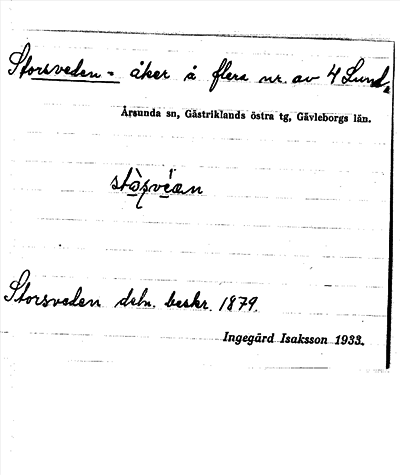 Storsveden - åker å flera nr. av 4 Lund,
Årsunda sn, Gästriklands östra tg, Gävleborgs län.
Storsveden deln. beskr. 1879.
Ingegärd Isaksson 1933.